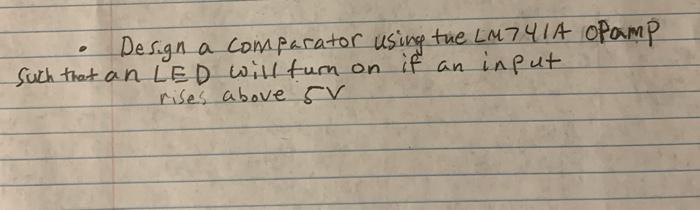 • Design a comparator using the LM741A opamp
such that an LED will turn on if an input
rises above 5V